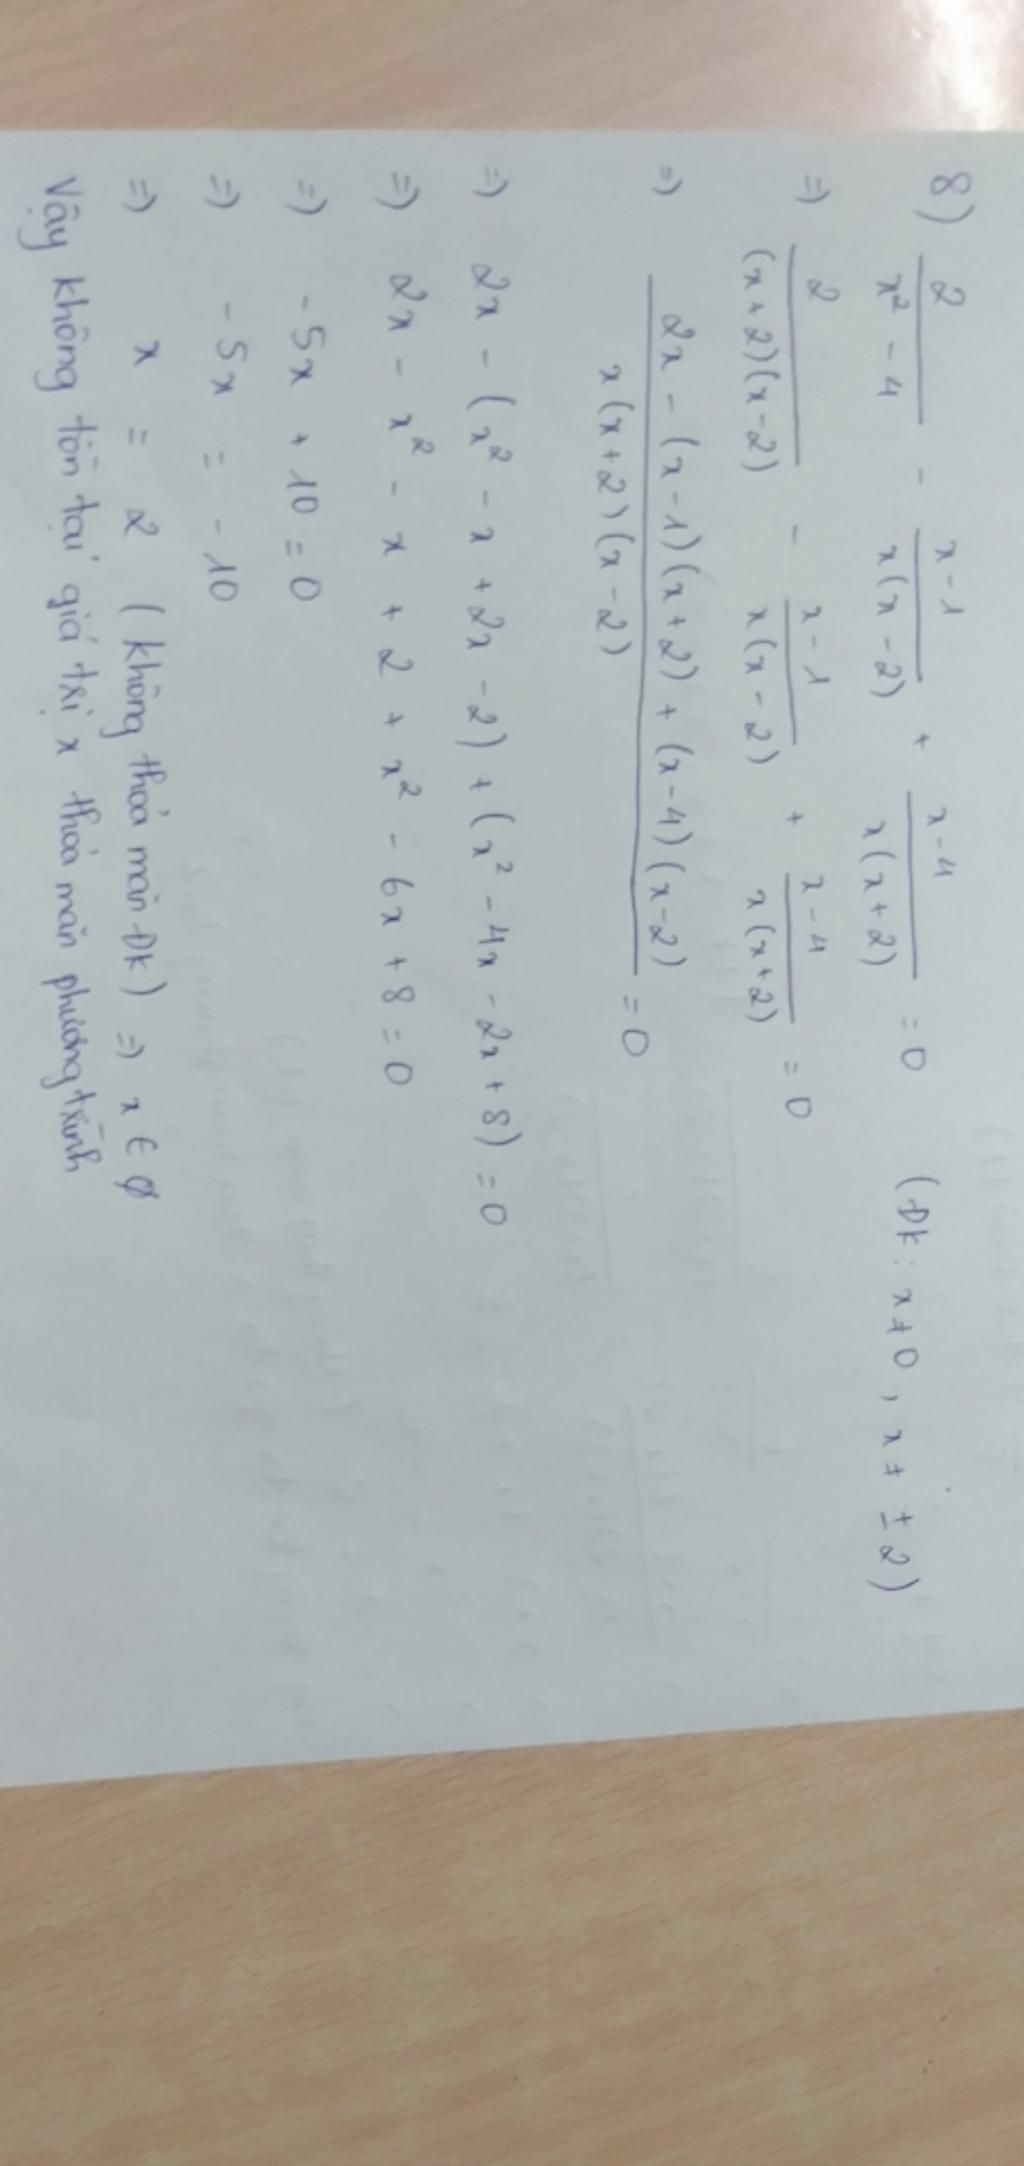 8) 2/(x² - 4) - (x-1)/(x(x-2)) + (x-4)/(x(x+2)) = 0 (ĐK: x≠0, x≠ ±2)
=) 2/((x+2)(x-2)) - (x-1)/(x(x-2)) + (x-4)/(x(x+2)) = 0
=) (2x - (x-1)(x+2) + (x-4)(x-2))/(x(x+2)(x-2)) = 0
=) 2x - (x² - x + 2x - 2) + (x² - 4x - 2x + 8) = 0
=) 2x - x² - x + 2 + x² - 6x + 8 = 0
=) -5x + 10 = 0
=) -5x = -10
=) x = 2 (không thoả mãn ĐK) =) x ∈ ∅
Vậy không tồn tại giá trị x thoả mãn phương trình